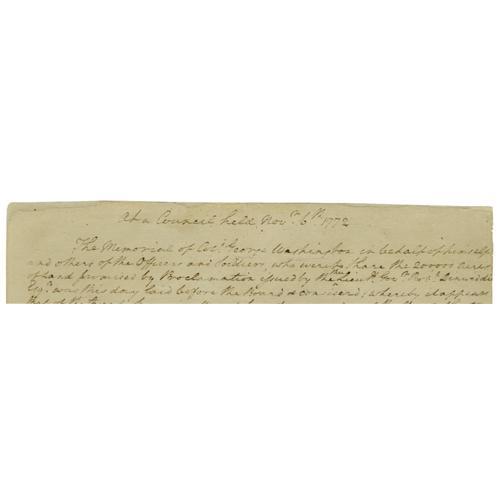 At a Council held Novr. 6th. 1772
The Memorial of Colo. George Washington in behalf of himself
and others of the Officers and Soldiers who were to share the 200000 Acres
of Land promised by Proclamation issued by the Lieut. Govr. Robt. Dinwiddie
Esqr. was this day laid before the Board & considered; whereby it appears
that of the